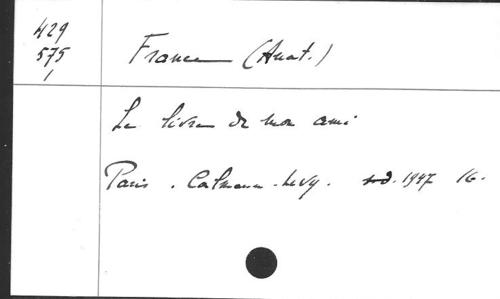 429
575
1
France (Anat.)
Le livre de mon ami
Paris. Calmann-Levy. s.d. 1947 16.